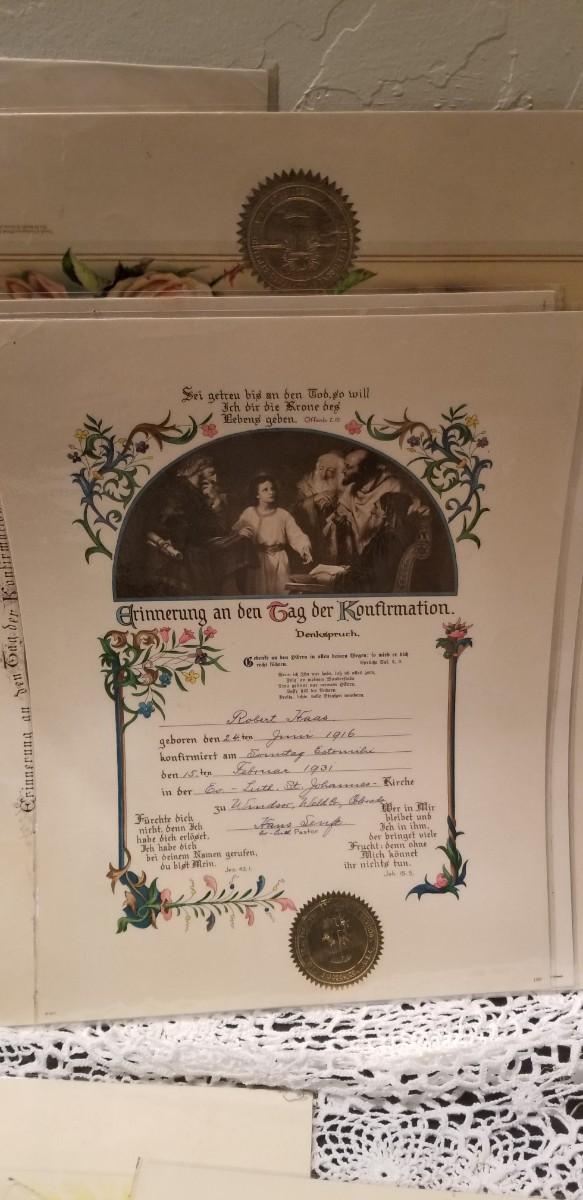 Sei getreu bis an den Tod, so will
Ich dir die Krone des
Lebens geben. Offenb. 2.10
Erinnerung an den Tag der Konfirmation.
Denkspruch.
Gedenke an den HErrn in allen deinen Wegen; so wird er dich
recht führen.
Robert Haas
geboren den 24ten Juni 1916
konfirmiert am Sonntag Estomihi
den 15.ten Februar 1931
in der Ev.-Luth. St. Johannes-Kirche
zu Windsor, Weld Co,
Hans
Ev-Luth Pastor
Fürchte dich
nicht, denn Ich
habe dich erlöset,
Ich habe dich
bei deinem Namen gerufen,
du bist Mein.
Jes. 43.1.
Wer in Mir
bleibet und
Ich in ihm,
der bringet viele
Frucht; denn ohne
Mich könnet
ihr nichts tun.
Joh. 15.5.
Erinnerung an den Tag der Konfirmation